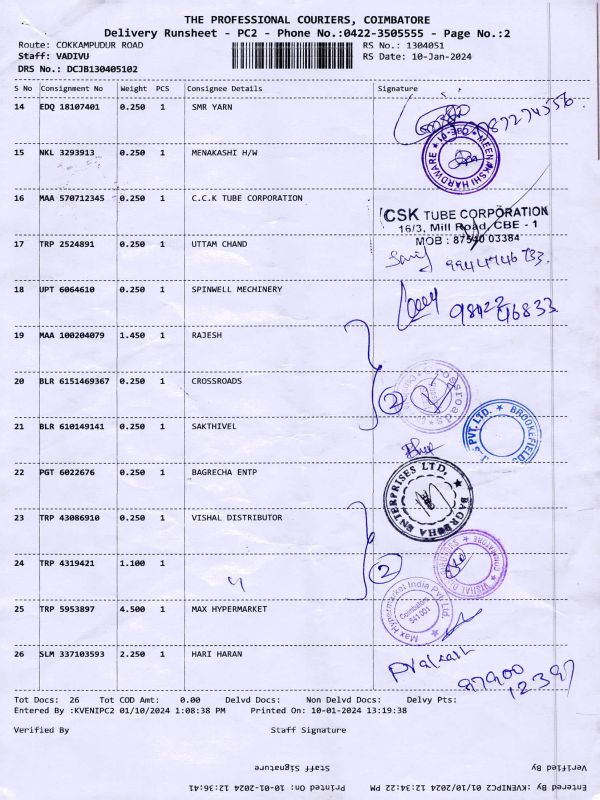 THE PROFESSIONAL COURIERS, COIMBATORE
Delivery Runsheet - PC2 - Phone No.:0422-3505555 - Page No.:2
Route: COKKAMPUDUR ROAD RS No.: 1304051
Staff: VADIVU RS Date: 10-Jan-2024
DRS No.: DCJB130405102
S No Consignment No Weight PCS Consignee Details Signature
14 EDQ 18107401 0.250 1 SMR YARN
15 NKL 3293913 0.250 1 MENAKASHI H/W
MEENAKSHI HARDWARE * CBE-01 *
16 MAA 570712345 0.250 1 C.C.K TUBE CORPORATION
CSK TUBE CORPORATION
16/3, Mill Road, CBE - 1
MOB : 87540 03384
17 TRP 2524891 0.250 1 UTTAM CHAND
9944746733.
18 UPT 6064610 0.250 1 SPINWELL MECHINERY
98422 46833
19 MAA 100204079 1.450 1 RAJESH
20 BLR 6151469367 0.250 1 CROSSROADS
2
Crossroads
21 BLR 610149141 0.250 1 SAKTHIVEL
PVT. LTD. * BROOKEFIELDS
22 PGT 6022676 0.250 1 BAGRECHA ENTP
BAGRECHA ENTERPRISES LTD.
CBE
23 TRP 43086910 0.250 1 VISHAL DISTRIBUTOR
24 TRP 4319421 1.100 1
2
VISHAL DISTRIBUTORS * COIMBATORE *
25 TRP 5953897 4.500 1 MAX HYPERMARKET
Max Hypermarket India Pvt. Ltd. *
Coimbatore
641 001
26 SLM 337103593 2.250 1 HARI HARAN
Prakash
97900
12397
Tot Docs: 26 Tot COD Amt: 0.00 Delvd Docs: Non Delvd Docs: Delvy Pts:
Entered By :KVENIPC2 01/10/2024 1:08:38 PM Printed On: 10-01-2024 13:19:38
Verified By Staff Signature
Verified By Staff Signature
Entered By :KVENIPC2 01/10/2024 12:34:22 PM Printed On: 10-01-2024 12:36:41